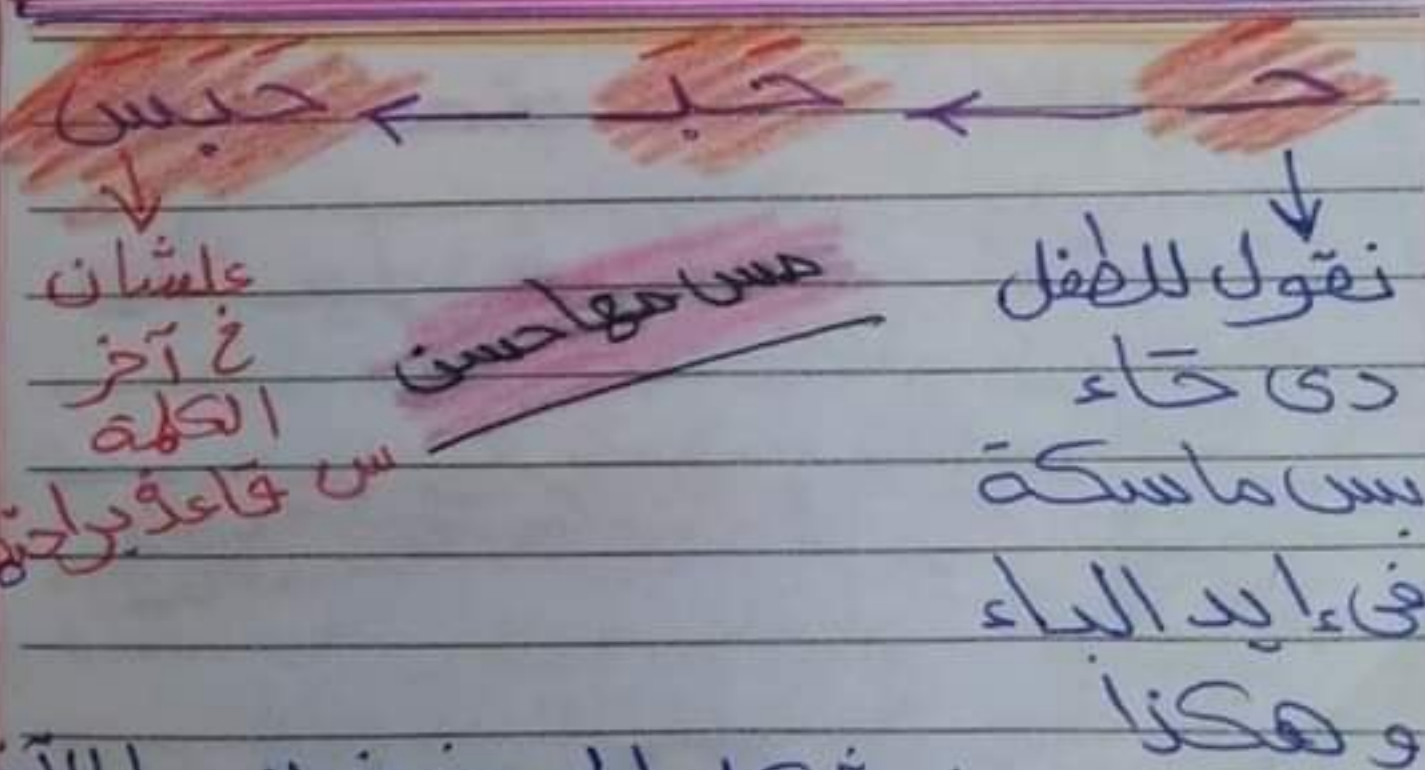 حـ ← حبـ ← حبس
نقول للطفل
دى حاء
بس ماسكة
فى إيد الباء
وهكذا
مس مها حسن
علشان
خ آخر
الكلمة
س قاعدة براحتها